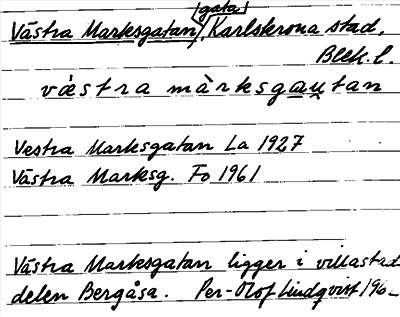 (gata)
Västra Marksgatan, Karlskrona stad,
Blek. l.
västra màrksgatan
Vestra Marksgatan La 1927
Västra Marksg. Fo 1961
Västra Marksgatan ligger i villastad
delen Bergåsa. Per-Olof Lindqvist 196-